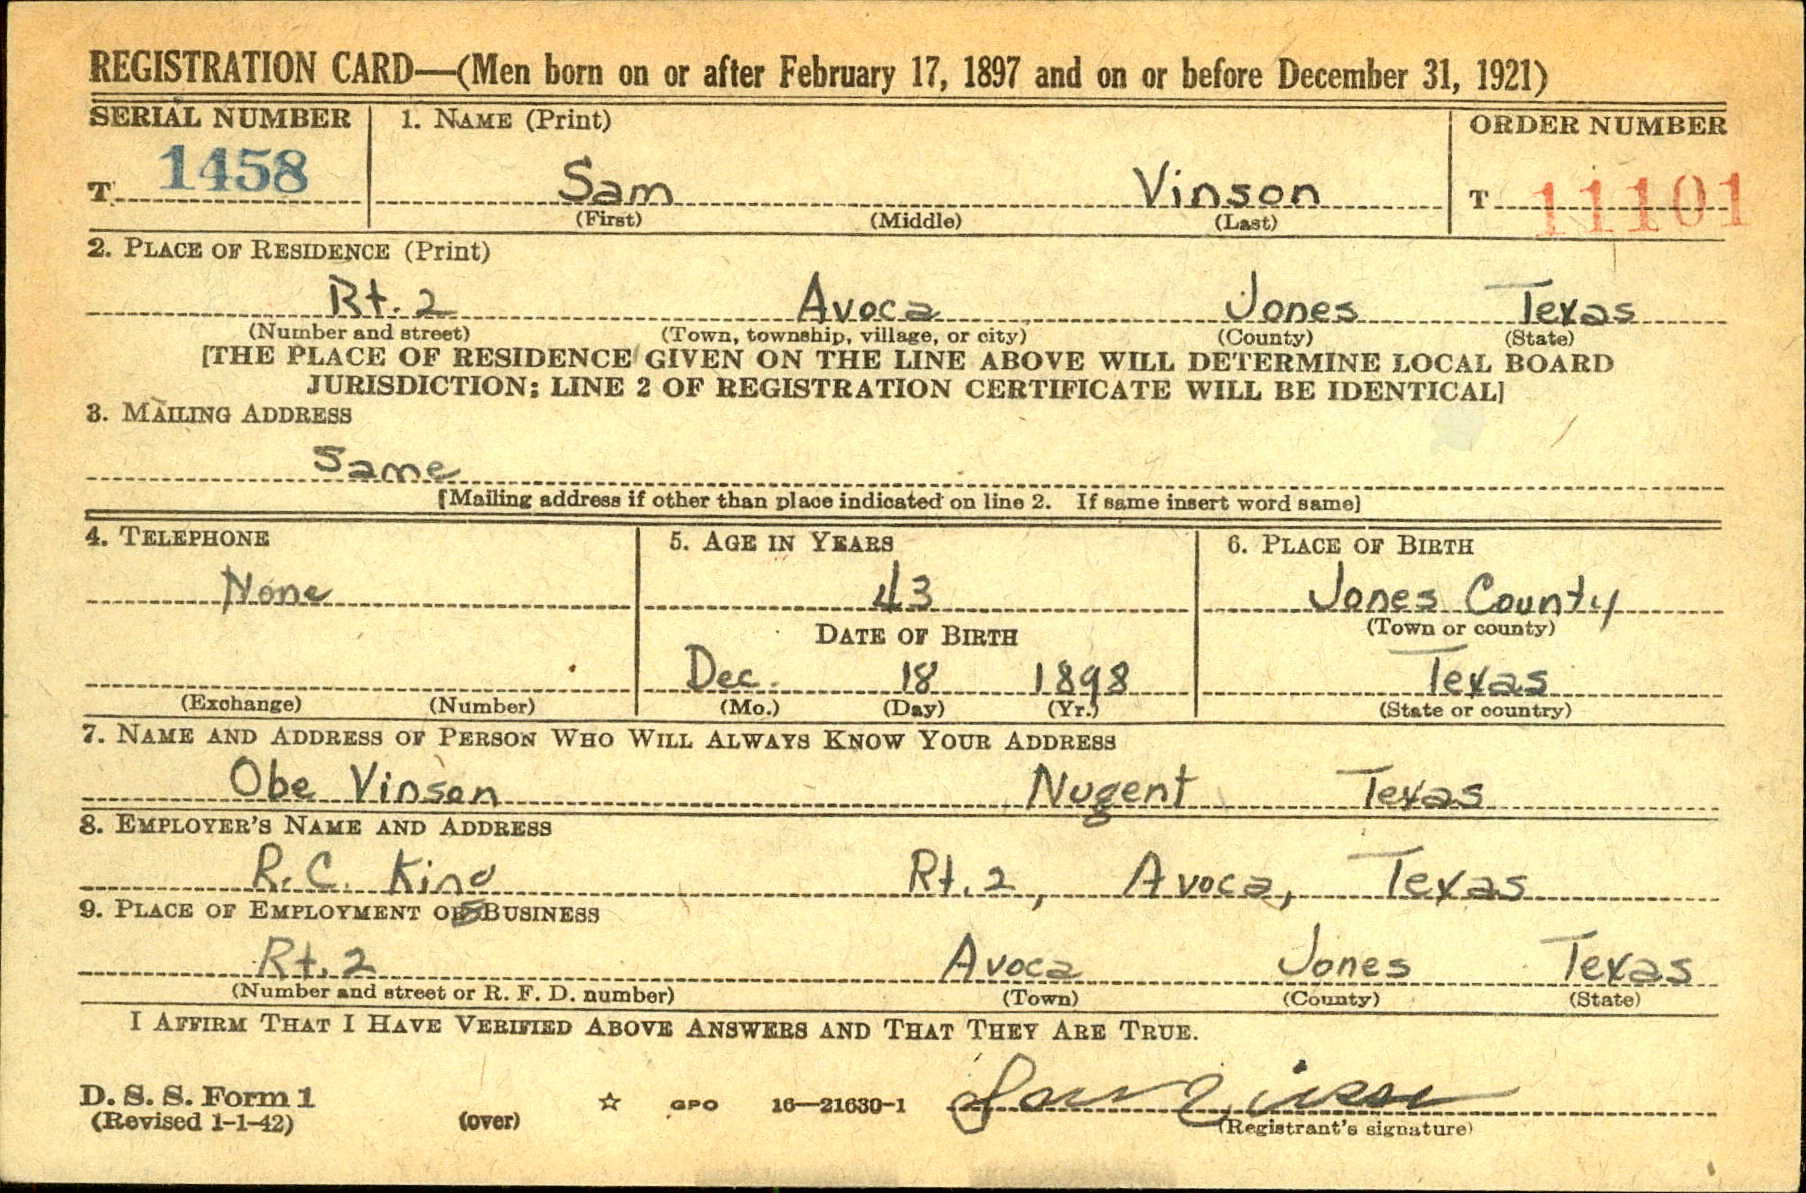 REGISTRATION CARD—(Men born on or after February 17, 1897 and on or before December 31, 1921)
SERIAL NUMBER 1. NAME (Print) ORDER NUMBER
T 1458 Sam Vinson T 11101
(First) (Middle) (Last)
2. PLACE OF RESIDENCE (Print)
Rt. 2 Avoca Jones Texas
(Number and street) (Town, township, village, or city) (County) (State)
[THE PLACE OF RESIDENCE GIVEN ON THE LINE ABOVE WILL DETERMINE LOCAL BOARD
JURISDICTION; LINE 2 OF REGISTRATION CERTIFICATE WILL BE IDENTICAL]
3. MAILING ADDRESS
Same
[Mailing address if other than place indicated on line 2. If same insert word same]
4. TELEPHONE 5. AGE IN YEARS 6. PLACE OF BIRTH
None 43 Jones County
DATE OF BIRTH (Town or county)
Dec. 18 1898 Texas
(Exchange) (Number) (Mo.) (Day) (Yr.) (State or country)
7. NAME AND ADDRESS OF PERSON WHO WILL ALWAYS KNOW YOUR ADDRESS
Obe Vinson Nugent Texas
8. EMPLOYER'S NAME AND ADDRESS
R. C. King Rt. 2, Avoca, Texas
9. PLACE OF EMPLOYMENT OR BUSINESS
Rt. 2 Avoca Jones Texas
(Number and street or R. F. D. number) (Town) (County) (State)
I AFFIRM THAT I HAVE VERIFIED ABOVE ANSWERS AND THAT THEY ARE TRUE.
D. S. S. Form 1
(Revised 1-1-42) (over) GPO 16—21630-1 Sam Vinson
(Registrant's signature)